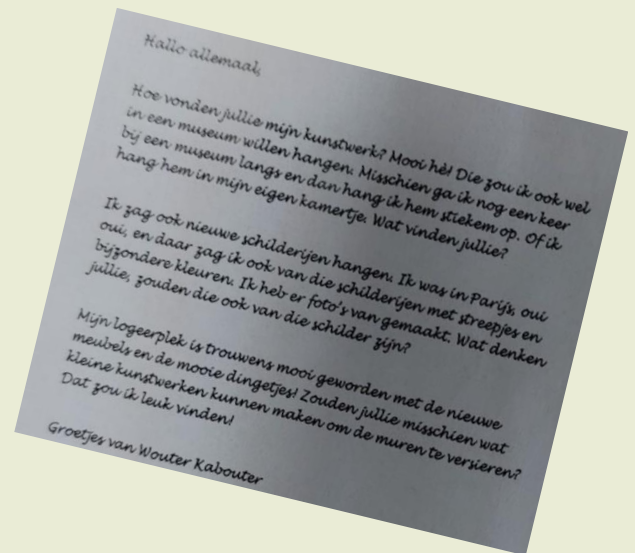 Hallo allemaal,
Hoe vonden jullie mijn kunstwerk? Mooi hè! Die zou ik ook wel
in een museum willen hangen. Misschien ga ik nog een keer
bij een museum langs en dan hang ik hem stiekem op. Of ik
hang hem in mijn eigen kamertje. Wat vinden jullie?
Ik zag ook nieuwe schilderijen hangen. Ik was in Parijs, oui
oui, en daar zag ik ook van die schilderijen met streepjes en
bijzondere kleuren. Ik heb er foto's van gemaakt. Wat denken
jullie, zouden die ook van die schilder zijn?
Mijn logeerplek is trouwens mooi geworden met de nieuwe
meubels en de mooie dingetjes! Zouden jullie misschien wat
kleine kunstwerken kunnen maken om de muren te versieren?
Dat zou ik leuk vinden!
Groetjes van Wouter Kabouter